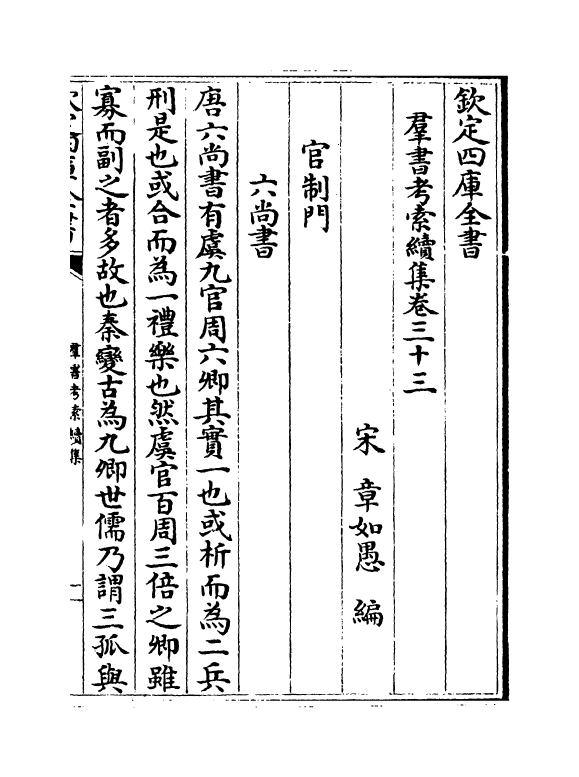 欽定四庫全書
羣書考索續集卷三十三
宋 章如愚 編
官制門
六尚書
唐六尚書有虞九官周六卿其實一也或析而為二兵
刑是也或合而為一禮樂也然虞官百周三倍之卿雖
寡而副之者多故也秦變古為九卿世儒乃謂三孤與
羣書考索續集
一